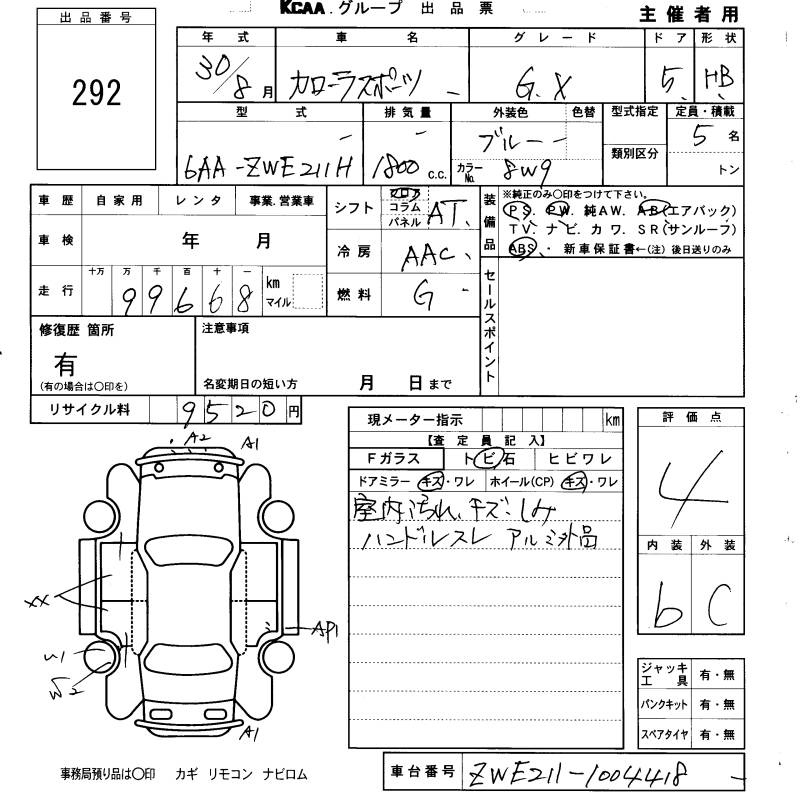 KCAA.グループ 出品票
主催者用
出品番号
292
年式 車名 グレード ドア 形状
30/8月 カローラスポーツ G.X 5 HB
型式 排気量 外装色 色替 型式指定 定員・積載
6AA-ZWE211H 1800c.c. ブルー 5名
カラーNo. 8W9 類別区分 トン
車歴 自家用 レンタ 事業.営業車
シフト フロア コラム パネル AT
装備品
※純正のみ○印をつけて下さい。
PS. PW. 純AW. AB(エアバック)
TV. ナビ. カワ. SR(サンルーフ)
ABS. 新車保証書←(注)後日送りのみ
車検 年 月
冷房 AAC
走行 十万 万 千 百 十 一
99668 km マイル
燃料 G
セールスポイント
修復歴 箇所
有
(有の場合は○印を)
注意事項
名変期日の短い方 月 日まで
リサイクル料 9520円
現メーター指示 km
【査定員記入】
Fガラス トビ石 ヒビワレ
ドアミラー キズ・ワレ ホイール(CP) キズ・ワレ
室内汚れ、キズ、シミ
ハンドルスレ アルミ外品
評価点
4
内装 外装
b C
A2 A1
XX
AP1
W2
A1
ジャッキ工具 有・無
パンクキット 有・無
スペアタイヤ 有・無
事務局預り品は○印 カギ リモコン ナビロム
車台番号 ZWE211-1004418